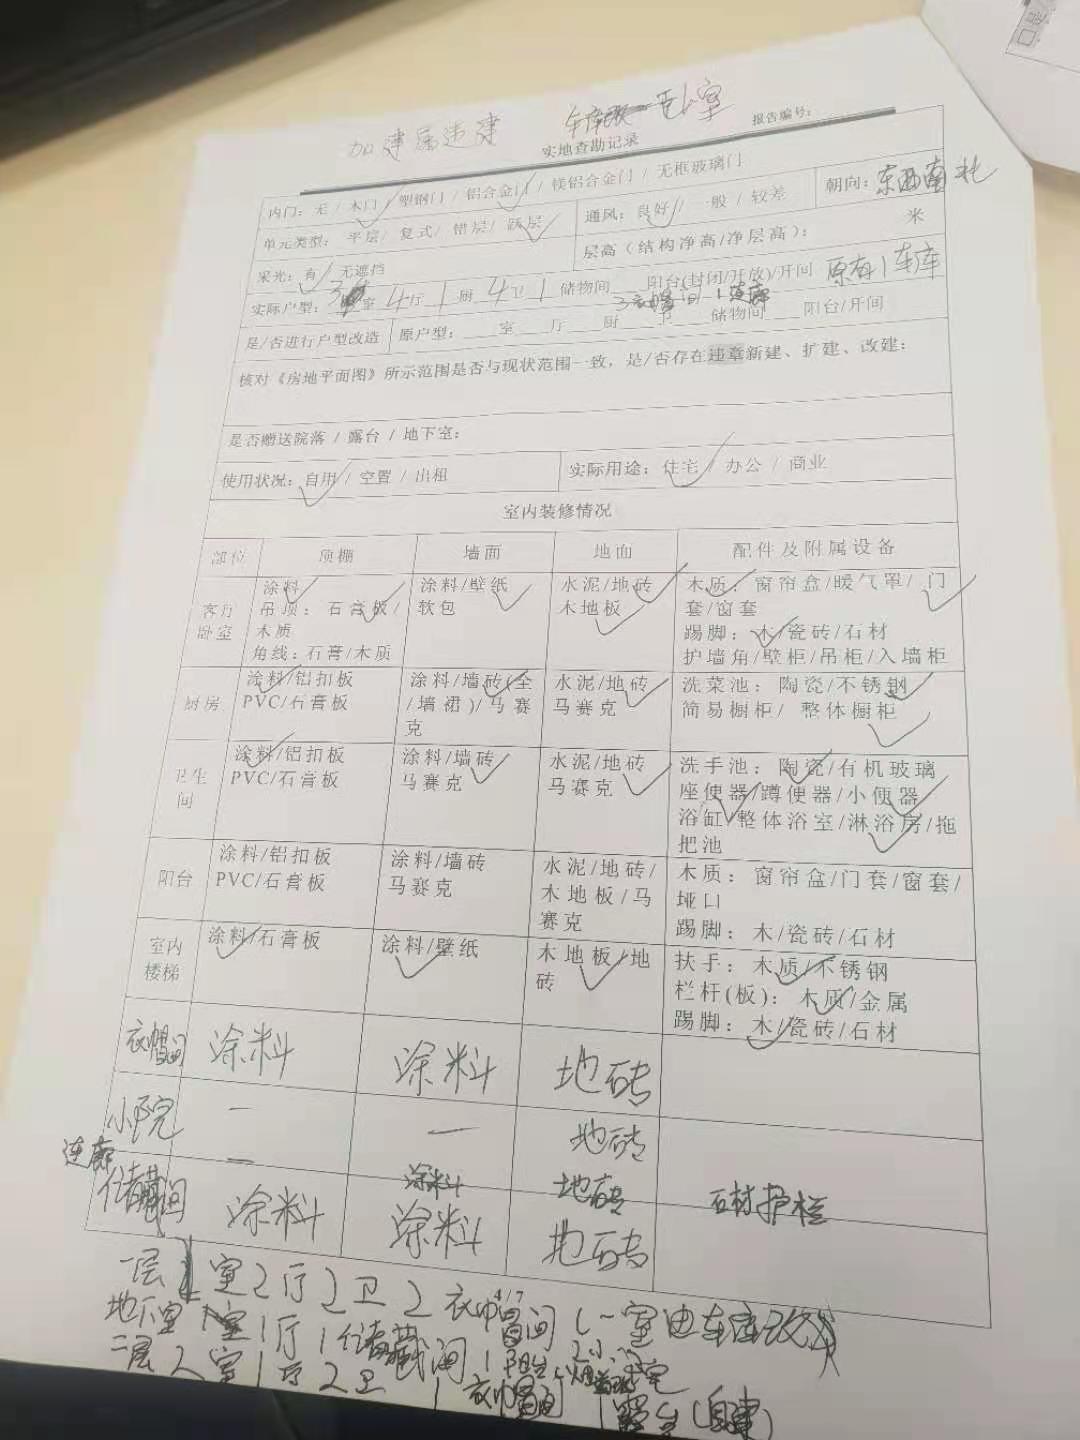 加建属违建 车库改 卧室
实地查勘记录 报告编号：
内门：无 / 木门 / 塑钢门 / 铝合金门 / 镁铝合金门 / 无框玻璃门
单元类型：平层 / 复式 / 错层 / 跃层 通风：良好 / 一般 / 较差 朝向：东西南北
采光：有 / 无遮挡 层高（结构净高/净层高）： 米
实际户型： 室 4 厅 1 厨 4 卫 1 储物间 阳台(封闭/开放)/开间 原有1车库
3衣帽间 1连廊
是/否进行户型改造 原户型： 室 厅 厨 卫 储物间 阳台/开间
核对《房地平面图》所示范围是否与现状范围一致，是/否存在违章新建、扩建、改建：
是否赠送院落 / 露台 / 地下室：
使用状况：自用 / 空置 / 出租 实际用途：住宅 / 办公 / 商业
室内装修情况
部位 顶棚 墙面 地面 配件及附属设备
客厅 涂料 涂料/壁纸 水泥/地砖 木质：窗帘盒/暖气罩/ 门
卧室 吊顶：石膏板/ 软包 木地板 套/窗套
木质 踢脚：木/瓷砖/石材
角线：石膏/木质 护墙角/壁柜/吊柜/入墙柜
厨房 涂料/铝扣板 涂料/墙砖(全 水泥/地砖 洗菜池：陶瓷/不锈钢
PVC/石膏板 /墙裙)/马赛 马赛克 简易橱柜/ 整体橱柜
克
卫生 涂料/铝扣板 涂料/墙砖 水泥/地砖 洗手池：陶瓷/有机玻璃
间 PVC/石膏板 马赛克 马赛克 座便器/蹲便器/小便器
浴缸/整体浴室/淋浴房/拖
把池
阳台 涂料/铝扣板 涂料/墙砖 水泥/地砖/ 木质：窗帘盒/门套/窗套/
PVC/石膏板 马赛克 木地板/马 垭口
赛克 踢脚：木/瓷砖/石材
室内 涂料/石膏板 涂料/壁纸 木地板/地 扶手：木质/不锈钢
楼梯 砖 栏杆(板)：木质/金属
踢脚：木/瓷砖/石材
衣帽间 涂料 涂料 地砖
小院 一 一 地砖
连廊 一 涂料 地砖 石材护栏
储藏间 涂料 涂料 地砖
4 / 7
一层 室2厅2卫2衣帽间(一室由车库改)
地下室 1室1厅1储藏间
二层 2室1厅2卫 1衣帽间 1露台(自建)